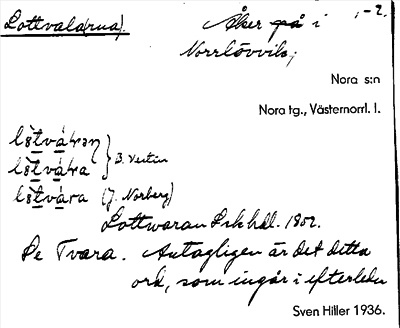 Lottvala(rna).
Åker på i
Norrlövvik;
Nora s:n
Nora tg., Västernorrl. l.
B. Vestin
(J. Norberg)
Lottwaran Lskhdl. 1802.
Se Tvara. Antagligen är det detta
ord, som ingår i efterleden
Sven Hiller 1936.